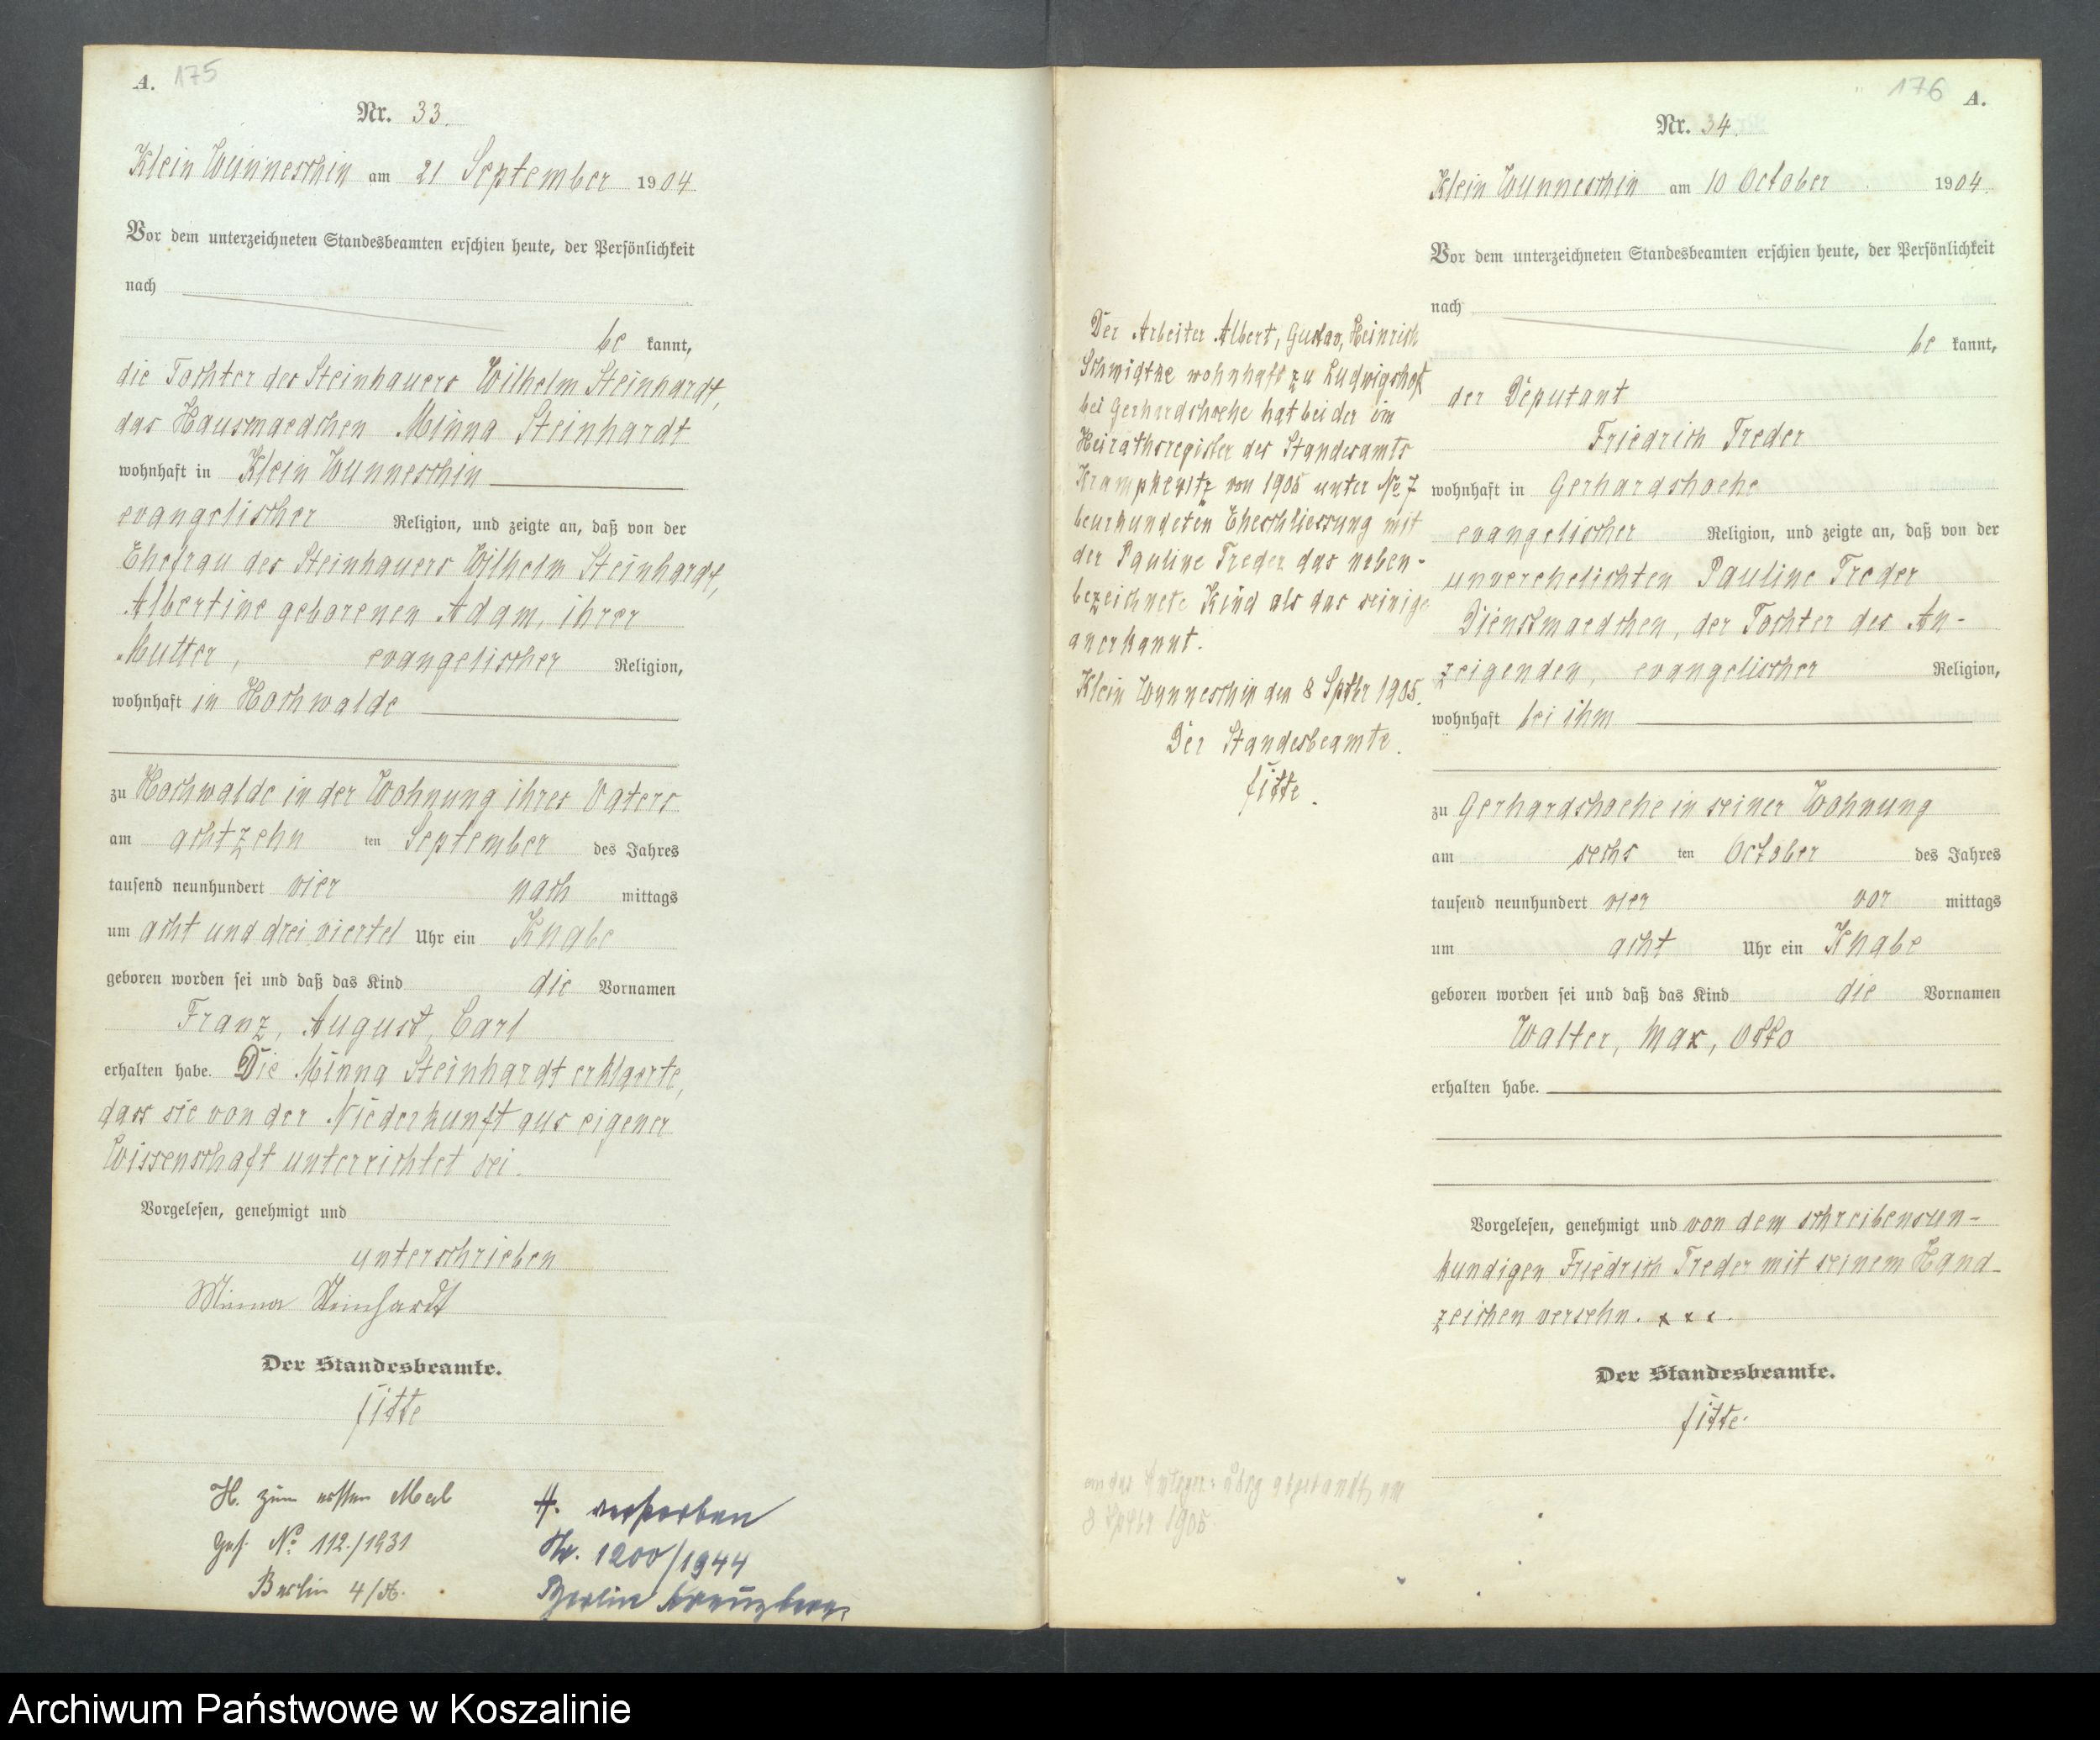 A. 175
Nr. 33.
Klein Wunneschin am 21 September 1904
Vor dem unterzeichneten Standesbeamten erschien heute, der Persönlichkeit
nach
be kannt,
die Tochter des Steinhauers Wilhelm Steinhardt,
das Hausmaedchen Minna Steinhardt
wohnhaft in Klein Wunneschin
evangelischer Religion, und zeigte an, daß von der
Ehefrau des Steinhauers Wilhelm Steinhardt,
Albertine geborenen Adam, ihrer
Mutter, evangelischer Religion,
wohnhaft in Hochwalde
zu Hochwalde in der Wohnung ihres Vaters
am achtzehn ten September des Jahres
tausend neunhundert vier nach mittags
um acht und drei viertel Uhr ein Knabe
geboren worden sei und daß das Kind die Vornamen
Franz, August, Carl
erhalten habe. Die Minna Steinhardt erklaerte,
dass sie von der Niederkunft aus eigener
Wissenschaft unterrichtet sei.
Vorgelesen, genehmigt und
unterschrieben
Minna Steinhardt
Der Standesbeamte.
Fitte
H. zum ersten Mal
No 112./1931
Berlin 4/A.
H. verstorben
Nr. 1200/1944
Berlin Kreuzberg
176 A.
Nr. 34.
Klein Wunneschin am 10 October 1904.
Vor dem unterzeichneten Standesbeamten erschien heute, der Persönlichkeit
nach
be kannt,
der Deputant
Friedrich Treder
wohnhaft in Gerhardshoehe
evangelischer Religion, und zeigte an, daß von der
unverehelichten Pauline Treder
Dienstmaedchen, der Tochter des An-
zeigenden, evangelischer Religion,
wohnhaft bei ihm
zu Gerhardshoehe in seiner Wohnung
am sechs ten October des Jahres
tausend neunhundert vier vor mittags
um acht Uhr ein Knabe
geboren worden sei und daß das Kind die Vornamen
Walter, Max, Otto
erhalten habe.
Vorgelesen, genehmigt und von dem schreibensun-
kundigen Friedrich Treder mit seinem Hand-
zeichen versehn. x x x.
Der Standesbeamte.
Fitte.
Der Arbeiter Albert, Gustav, Heinrich
Schmidtke wohnhaft zu Ludwigshof
bei Gerhardshoehe hat bei der im
Heirathsregister des Standesamts
Krampkewitz von 1905 unter No 7
beurkundeten Eheschliessung mit
der Pauline Treder das neben-
bezeichnete Kind als das seinige
anerkannt.
Klein Wunneschin den 8 Sptbr 1905.
Der Standesbeamte.
Fitte.
abgesandt am
8 Sptbr 1905.
Archiwum Państwowe w Koszalinie